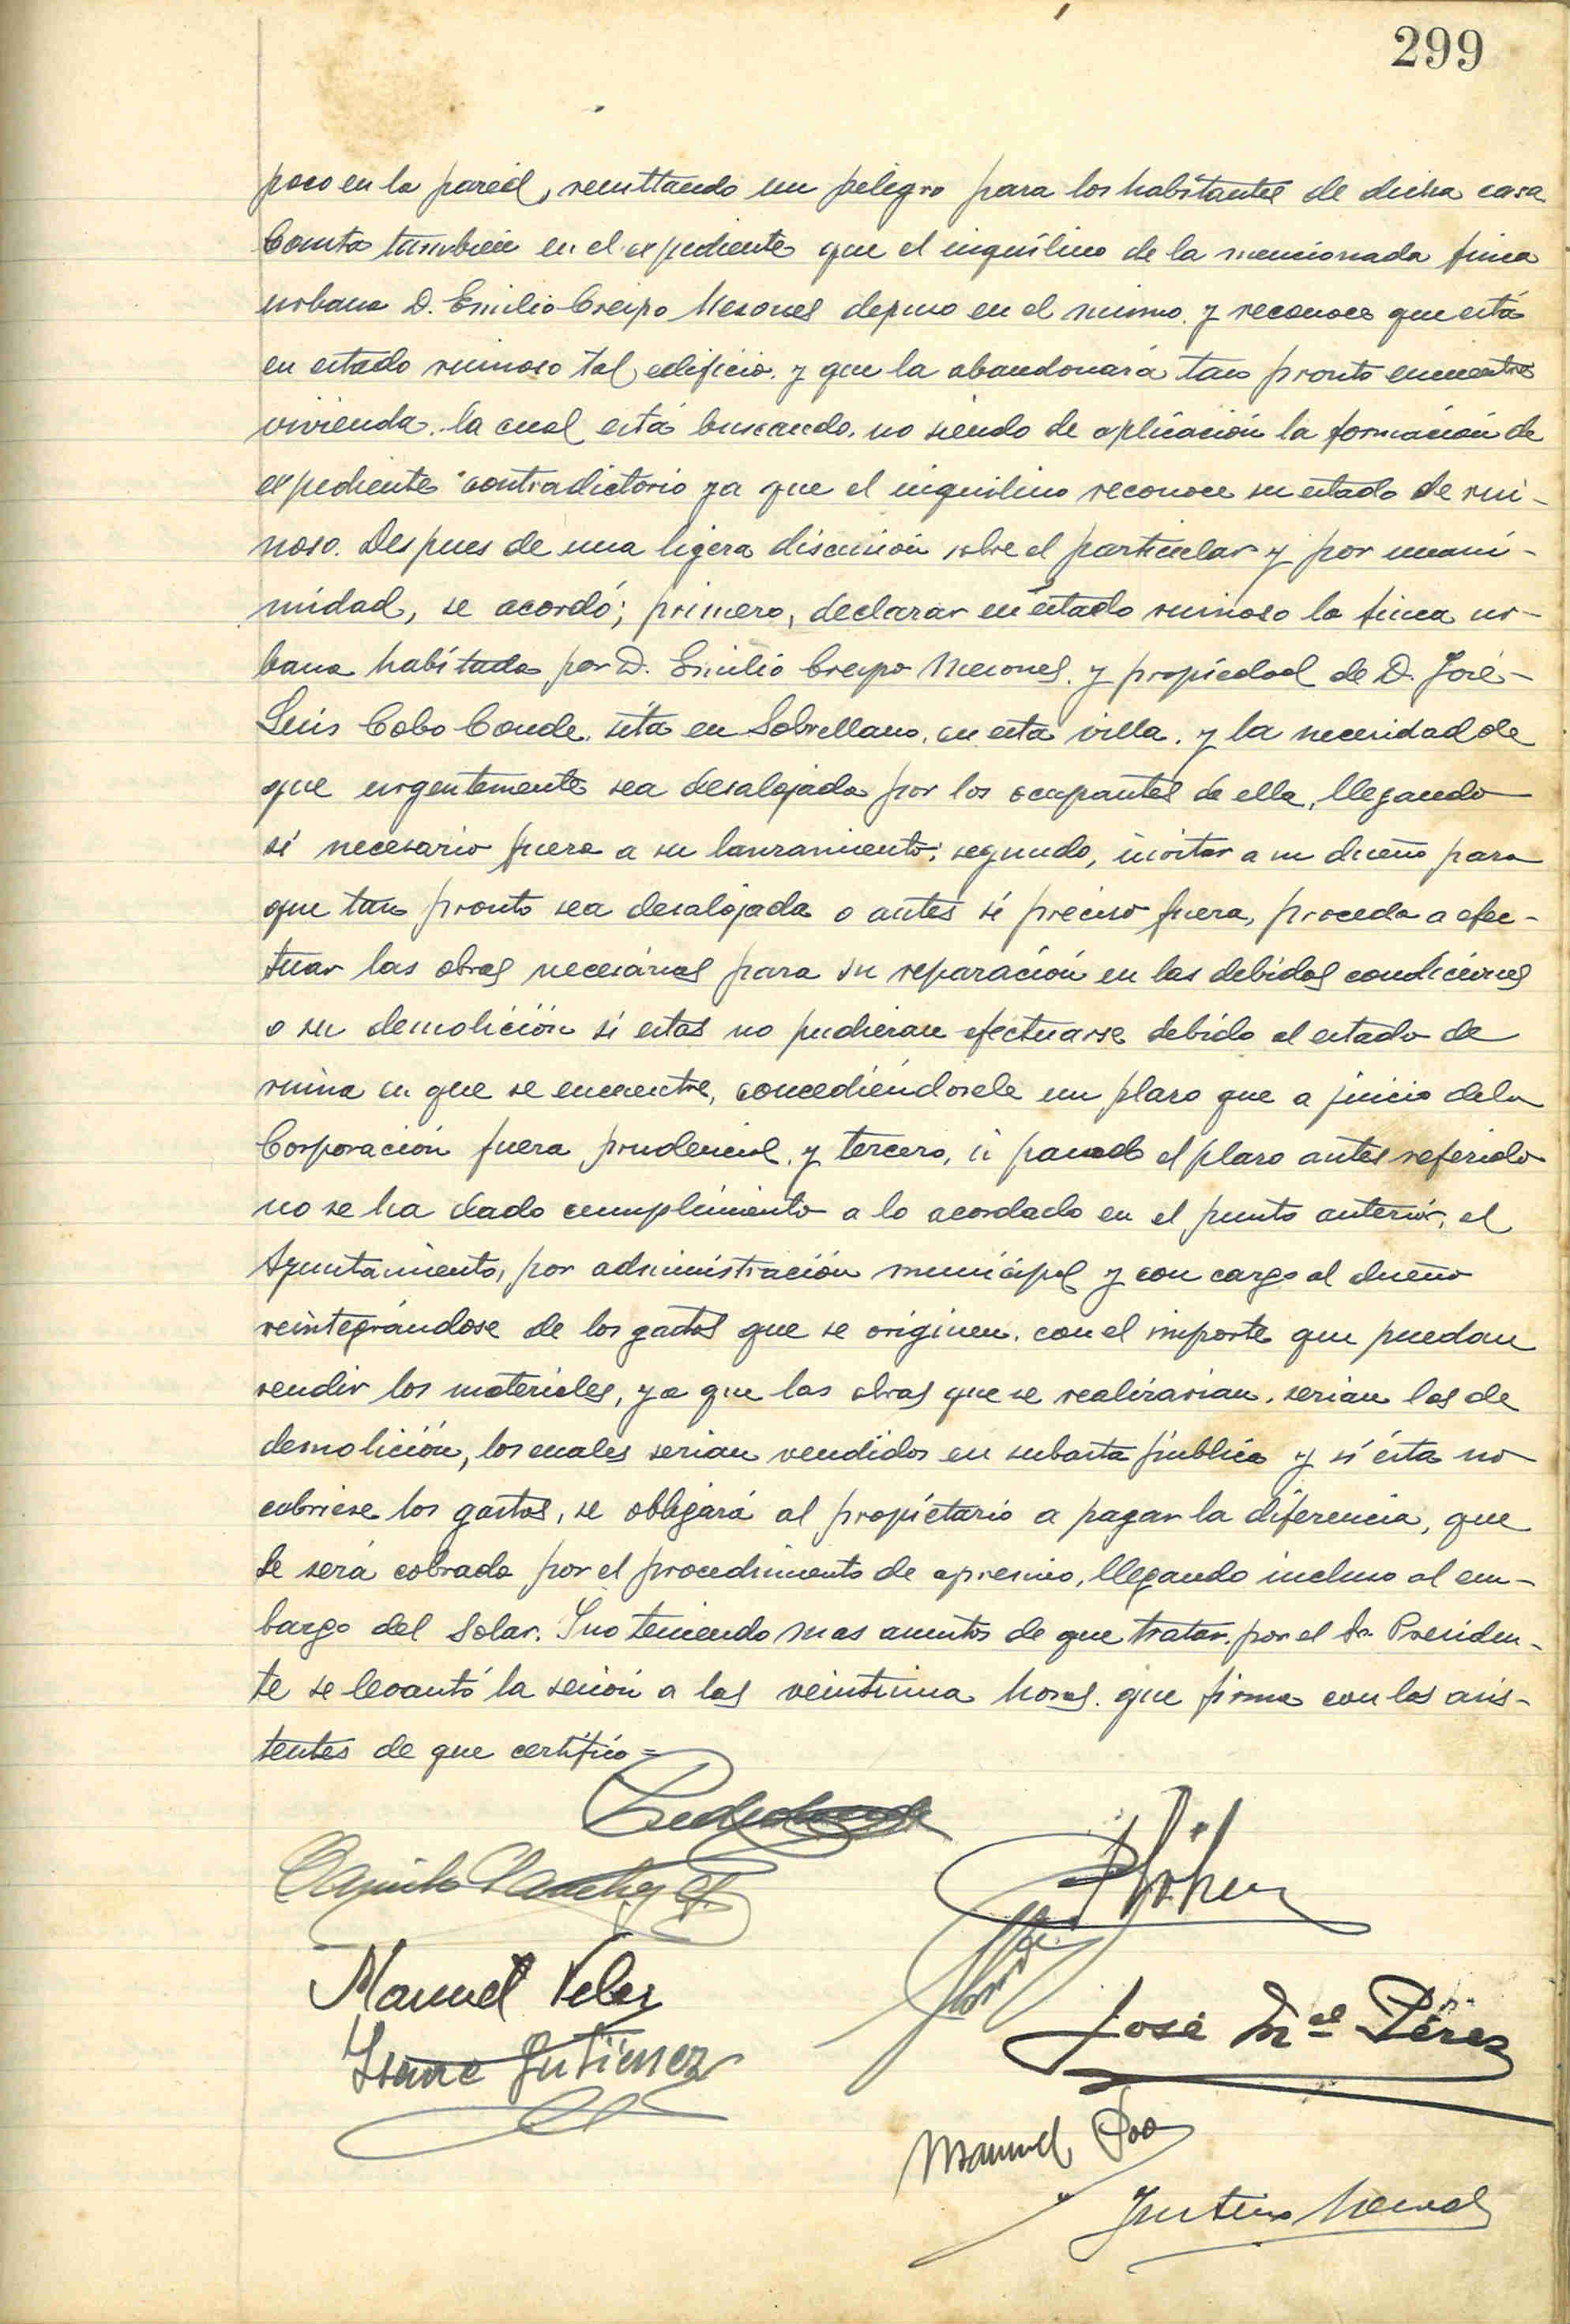 299
poco en la pared, resultando un peligro para los habitantes de dicha casa
Consta tambien en el expediente que el inquilino de la mencionada finca
urbana D. Emilio Crespo Mesones depuso en el mismo, y reconoce que está
en estado ruinoso tal edificio, y que la abandonará tan pronto encuentre
vivienda, la cual está buscando, no siendo de aplicación la formación de
expediente contradictorio ya que el inquilino reconoce su estado de rui-
noso. Despues de una ligera discusión sobre el particular y por unani-
midad, se acordó; primero, declarar en estado ruinoso la finca ur-
bana habitada por D. Emilio Crespo Mesones, y propiedad de D. José
Luis Cobo Conde, sita en Sobrellano, en esta villa, y la necesidad de
que urgentemente sea desalojada por los ocupantes de ella, llegando
si necesario fuera a su lanzamiento; segundo, invitar a su dueño para
que tan pronto sea desalojada o antes si preciso fuera, proceda a efec-
tuar las obras necesarias para su reparación en las debidas condiciones
o su demolición si estas no pudieran efectuarse debido al estado de
ruina en que se encuentre, concediéndosele un plazo que a juicio de la
Corporación fuera prudencial, y tercero, si pasado el plazo antes referido
no se ha dado cumplimiento a lo acordado en el punto anterior, el
Ayuntamiento, por administración municipal y con cargo al dueño
reintegrándose de los gastos que se originen, con el importe que puedan
rendir los materiales, ya que las obras que se realizarian, serian las de
demolición, los cuales serian vendidos en subasta pública y si ésta no
cubriese los gastos, se obligará al propietario a pagar la diferencia, que
le será cobrada por el procedimiento de apremio, llegando incluso al em-
bargo del solar. Y no teniendo mas asuntos de que tratar, por el Sr Presiden-
te se levantó la sesión a las veintiuna horas, que firma con los asis-
tentes de que certifico =
Manuel Velez
José Mª Pérez
Gutierrez
Manuel